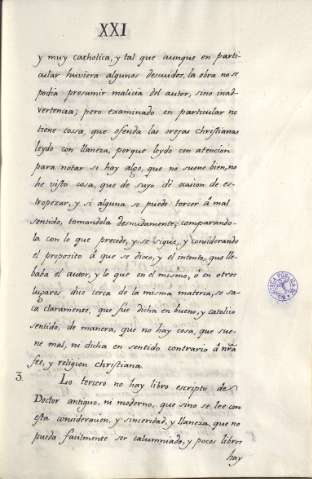 XXI
y muy catholica, y tal que aunque en parti-
cular huviera algunos descuidos, la obra no se
podia presumir malicia del autor, sino inad-
vertencia; pero examinado en particular no
tiene cossa, que ofenda las orejas christianas
leydo con llaneza, porque leydo con atención
para notar si hay algo, que no suene bien, no
he visto cosa, que de suyo dé ocasion de es-
tropezar, y si alguna se puede torcer á mal
sentido, tomandola desnudamente, comparando-
la con lo que precede, y se sigue, y considerando
el proposito á que se dice, y el intento, que lle-
baba el autor, y lo que en el mismo, ó en otros
lugares dice cerca de la misma materia, se sa-
ca claramente, que fue dicha en bueno, y catolico
sentido, de manera, que no hay cosa, que sue-
ne mal, ni dicha en sentido contrario á nrã
fee, y religion christiana.
3. Lo tercero no hay libro escripto de
Doctor antiguo, ni moderno, que sino se lee con
esta consideracion, y sinceridad, y llaneza, que no
pueda facilmente ser calumniado, y pocos libros
hay